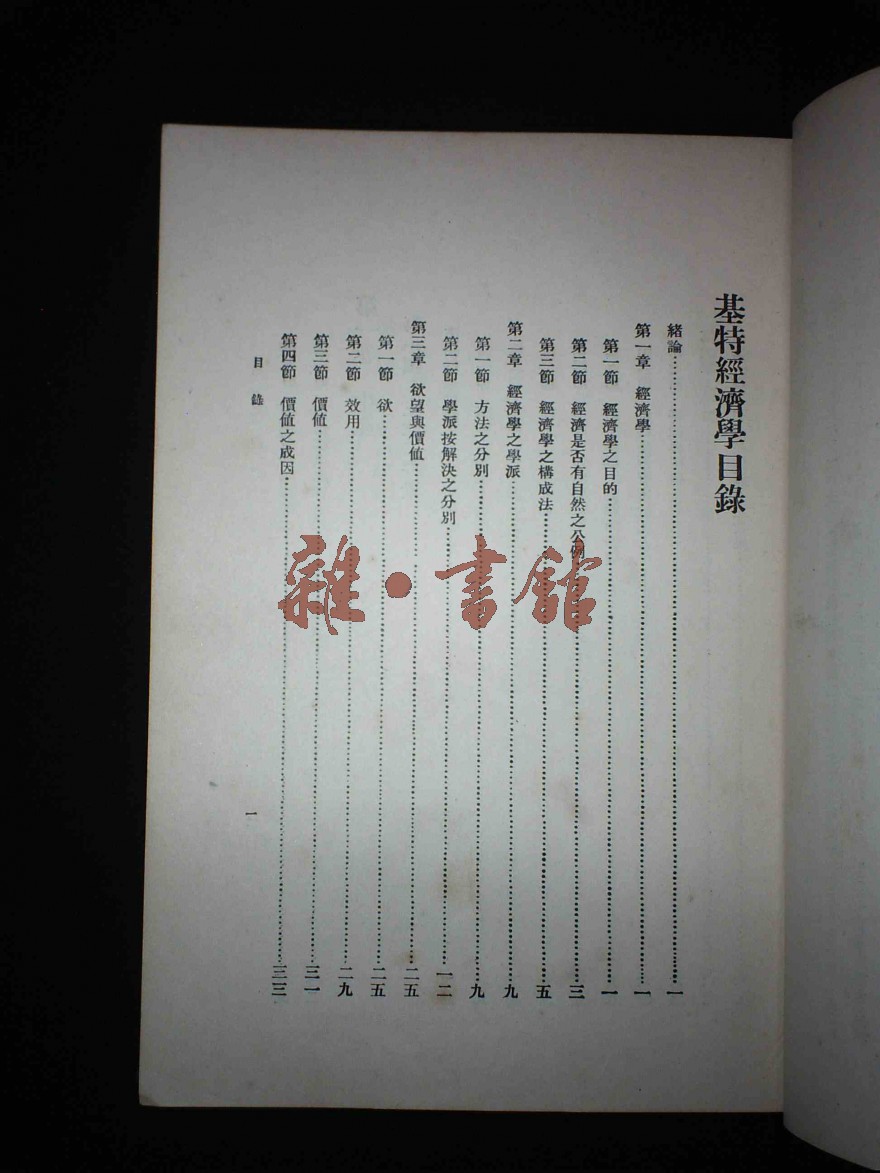 基特經濟學目錄
緒論……一
第一章 經濟學……一
第一節 經濟學之目的……一
第二節 經濟是否有自然之公例……三
第三節 經濟學之構成法……五
第二章 經濟學之學派……九
第一節 方法之分別……九
第二節 學派按解決之分別……一二
第三章 欲望與價值……二五
第一節 欲……二五
第二節 效用……二九
第三節 價值……三一
第四節 價值之成因……三三
目錄
一
雜·書館